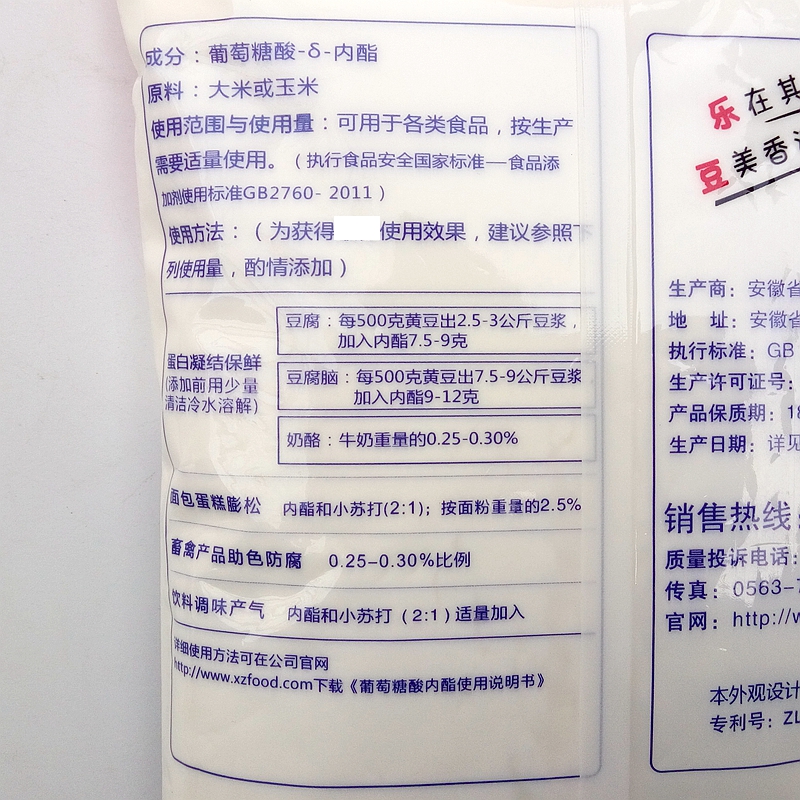 成分：葡萄糖酸-δ-内酯
原料：大米或玉米
使用范围与使用量：可用于各类食品，按生产
需要适量使用。（执行食品安全国家标准—食品添
加剂使用标准GB2760- 2011）
使用方法：（为获得 使用效果，建议参照下
列使用量，酌情添加）
蛋白凝结保鲜
(添加前用少量
清洁冷水溶解)
豆腐：每500克黄豆出2.5-3公斤豆浆，
加入内酯7.5-9克
豆腐脑：每500克黄豆出7.5-9公斤豆浆
加入内酯9-12克
奶酪：牛奶重量的0.25-0.30%
面包蛋糕膨松 内酯和小苏打(2:1)；按面粉重量的2.5%
畜禽产品助色防腐 0.25-0.30%比例
饮料调味产气 内酯和小苏打（2:1）适量加入
详细使用方法可在公司官网
http://www.xzfood.com下载《葡萄糖酸内酯使用说明书》
乐在其
豆美香
生产商：安徽省
地 址：安徽省
执行标准：GB
生产许可证号：
产品保质期：18
生产日期：详见
销售热线：
质量投诉电话：
传真：0563-7
官网：http://w
本外观设计
专利号：ZL